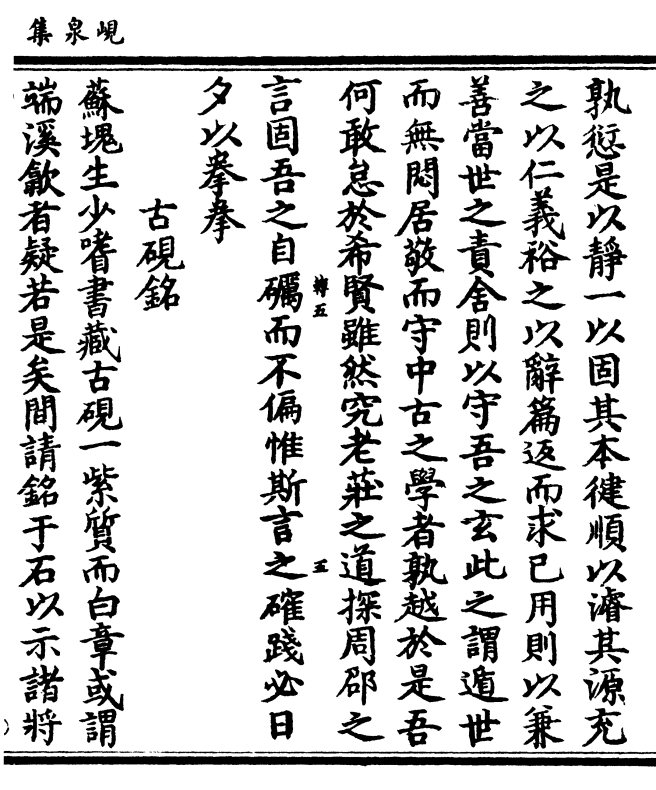 峴泉集
孰愆是以靜一以固其本健順以濬其源充
之以仁義裕之以辭篇返而求已用則以兼
善當世之責舍則以守吾之玄此之謂遁世
而無悶居敬而守中古之學者孰越於是吾
何敢怠於希賢雖然究老莊之道探周邵之
轉五
五
言固吾之自礪而不偏惟斯言之確踐必日
夕以拳拳
古硯銘
蘇塊生少嗜書藏古硯一紫質而白章或謂
端溪歙者疑若是矣間請銘于石以示諸將